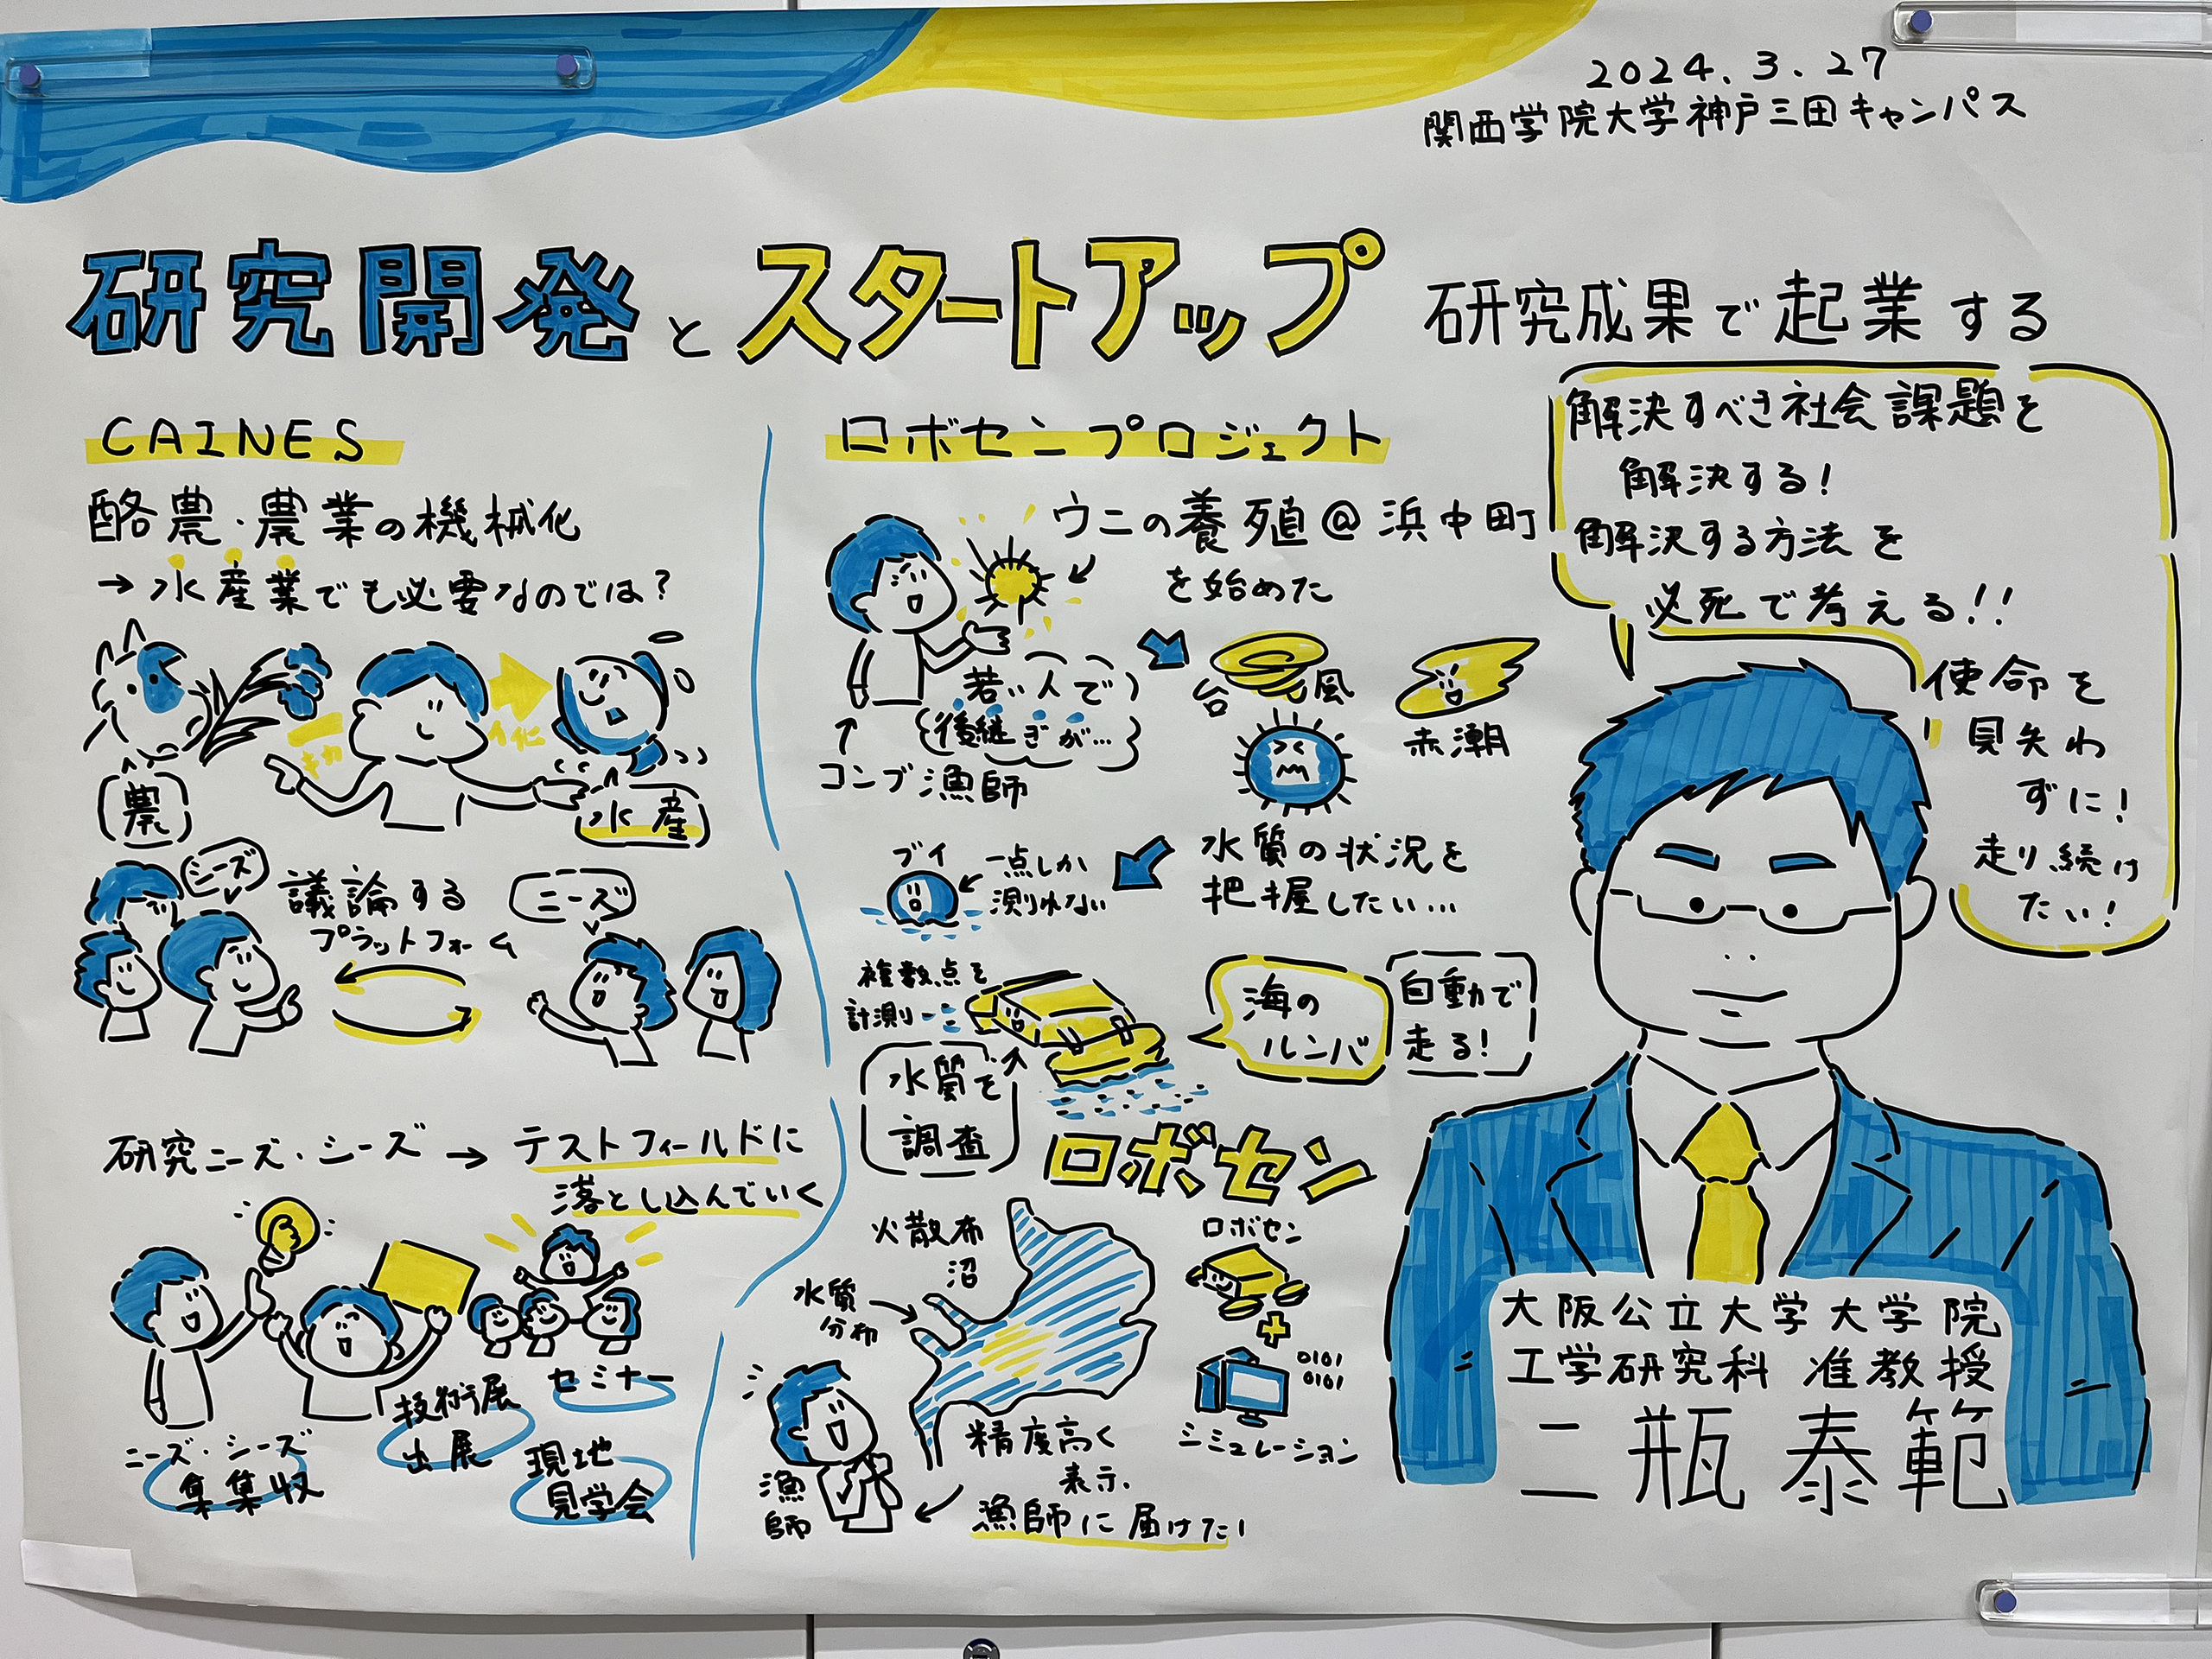 2024.3.27
関西学院大学神戸三田キャンパス
研究開発とスタートアップ 研究成果で起業する
CAINES
酪農・農業の機械化
→水産業でも必要なのでは?
農
水産
シーズ
議論する
プラットフォーム
ニーズ
研究ニーズ・シーズ → テストフィールドに
落とし込んでいく
ニーズ・シーズ
集集収
技術展
出展
セミナー
現地
見学会
ロボセンプロジェクト
ウニの養殖@浜中町
を始めた
若い人で
後継ぎが…
コンブ漁師
台風
赤潮
水質の状況を
把握したい…
ブイ
一点しか
測れない
複数点を
計測
水質を
調査
海の
ルンバ
自動で
走る!
ロボセン
火散布
沼
水質
分布
ロボセン
+
0101
0101
シミュレーション
精度高く
表示、
漁師に届けたい
漁師
解決すべき社会課題を
解決する!
解決する方法を
必死で考える!!
使命を
見失わ
ずに!
走り続け
たい!
大阪公立大学大学院
工学研究科 准教授
二瓶泰範